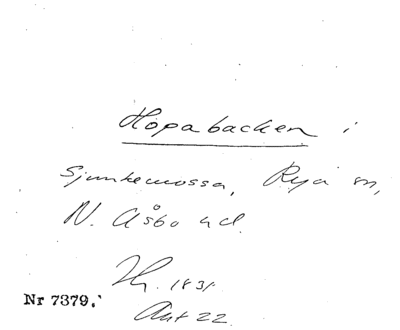 Hopabacken i
Sjunkemossa, Rya sn,
N. Åsbo hd.
1831
Nr 7379.
Akt 22